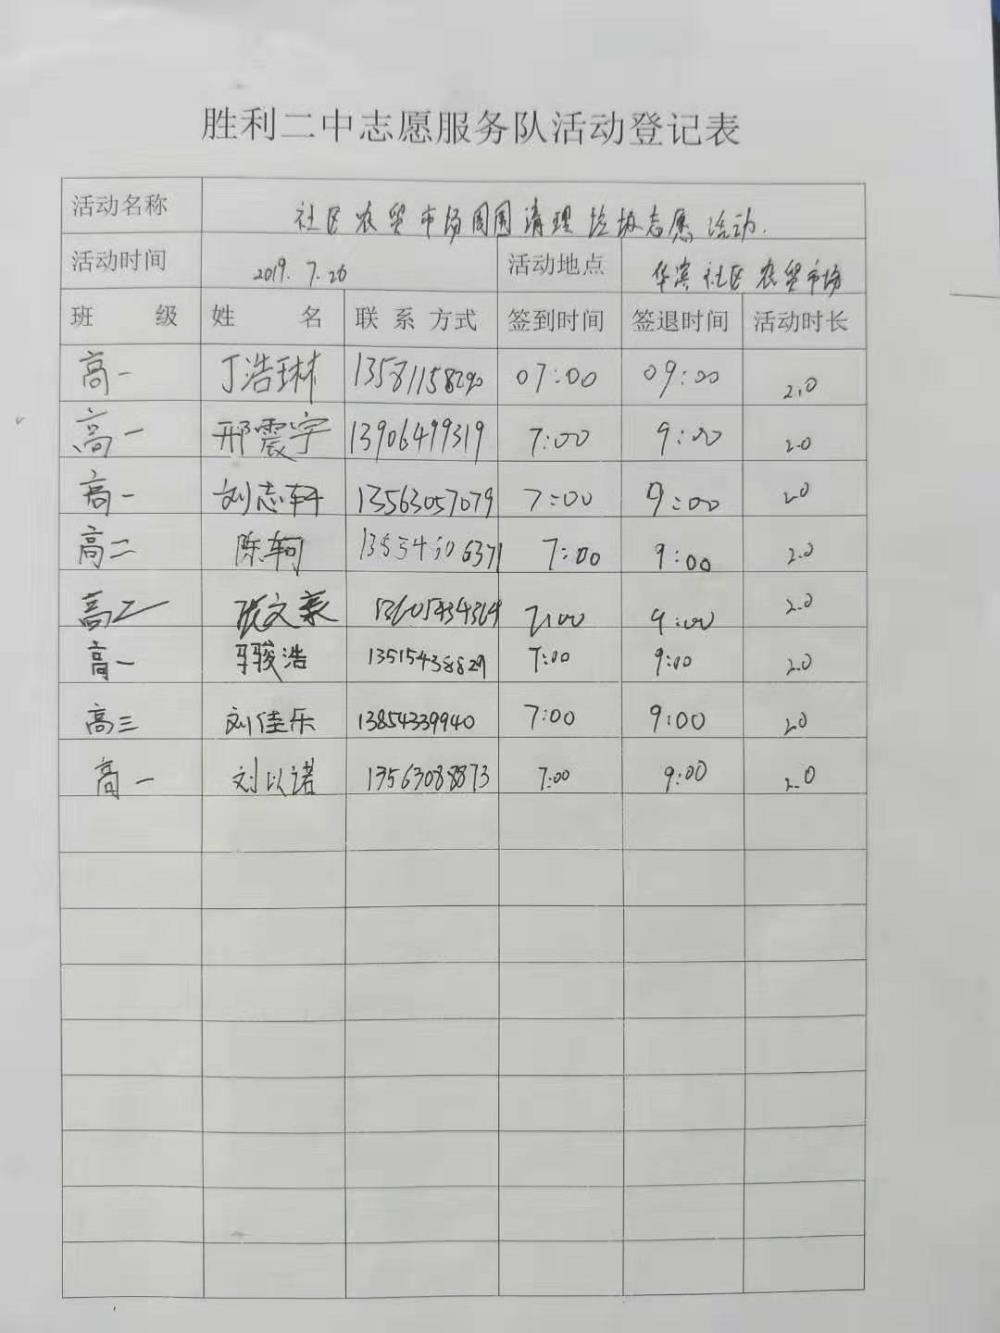 胜利二中志愿服务队活动登记表
活动名称 社区农贸市场周围清理垃圾志愿活动.
活动时间 2019.7.26 活动地点 华滨社区农贸市场
班 级 姓 名 联系方式 签到时间 签退时间 活动时长
高一 丁浩琳 13581158290 07:00 09:00 2.0
高一 邢震宇 13906499319 7:00 9:00 2.0
高一 刘志轩 13563057079 7:00 9:00 2.0
高二 陈轲 7:00 9:00 2.0
高二 张文豪 7:00 9:00 2.0
高一 骏浩 13515438829 7:00 9:00 2.0
高三 刘佳乐 13854339940 7:00 9:00 2.0
高一 刘以诺 13563088873 7:00 9:00 2.0